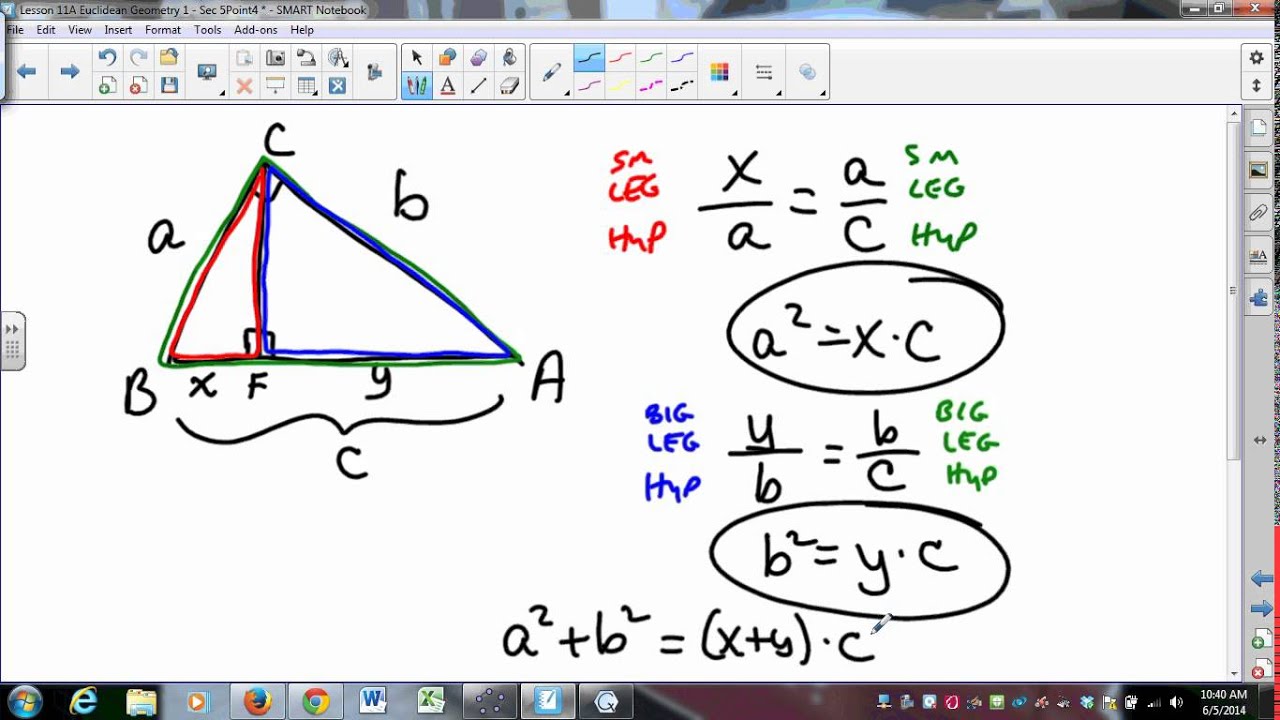 Lesson 11A Euclidean Geometry 1 - Sec 5Point4 * - SMART Notebook
File Edit View Insert Format Tools Add-ons Help
C
a
b
B x F y A
C
SM
LEG
HYP
x/a = a/C
SM
LEG
HYP
a² = x · C
BIG
LEG
HYP
y/b = b/C
BIG
LEG
HYP
b² = y · C
a² + b² = (x+y) · C
10:40 AM
6/5/2014